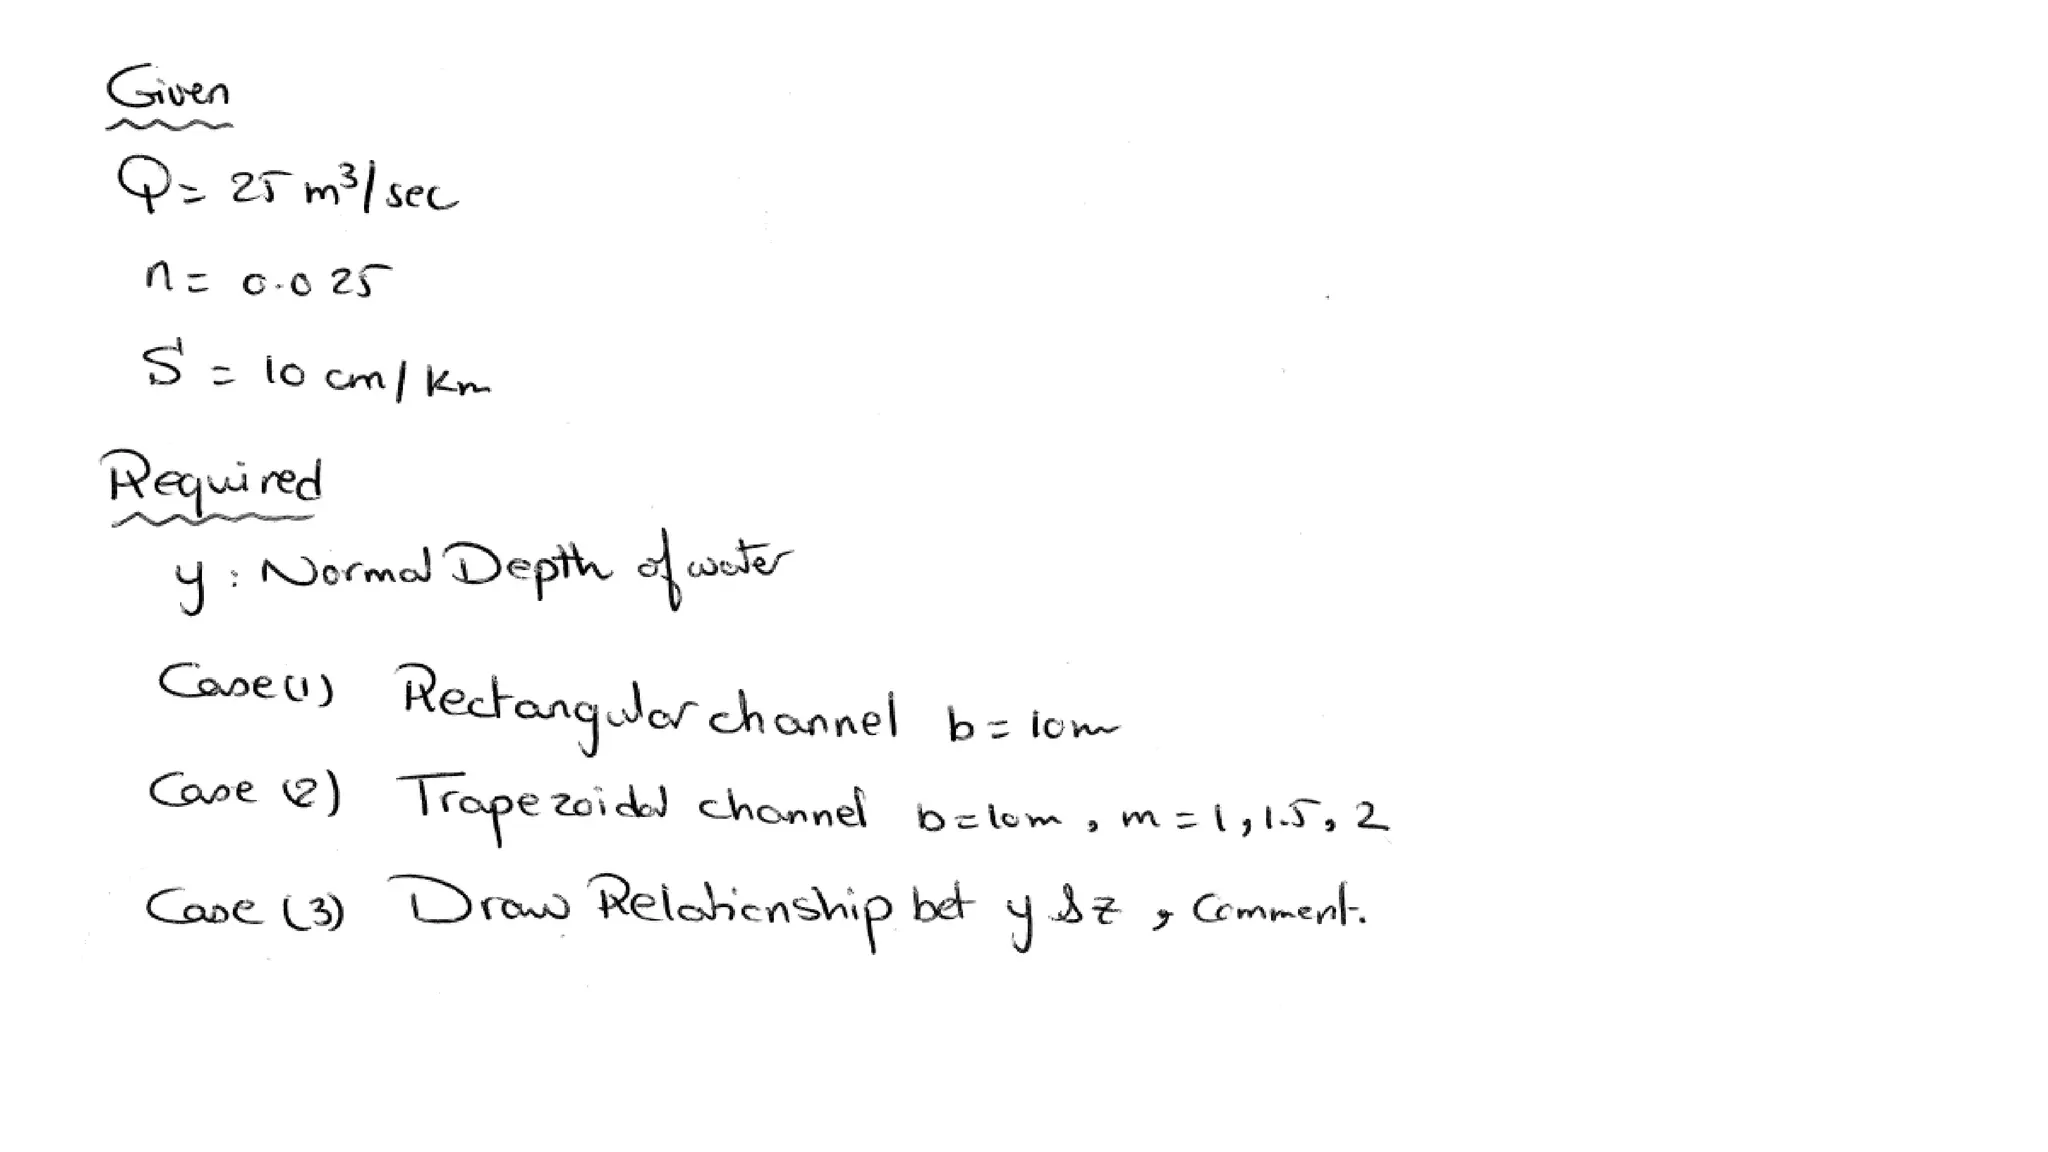 Given
Q = 25 m³/sec
n = 0.025
S = 10 cm/km
Required
y : Normal Depth of water
Case (1) Rectangular channel b = 10m
Case (2) Trapezoidal channel b = 10m , m = 1, 1.5, 2
Case (3) Draw Relationship bet y & z , Comment.